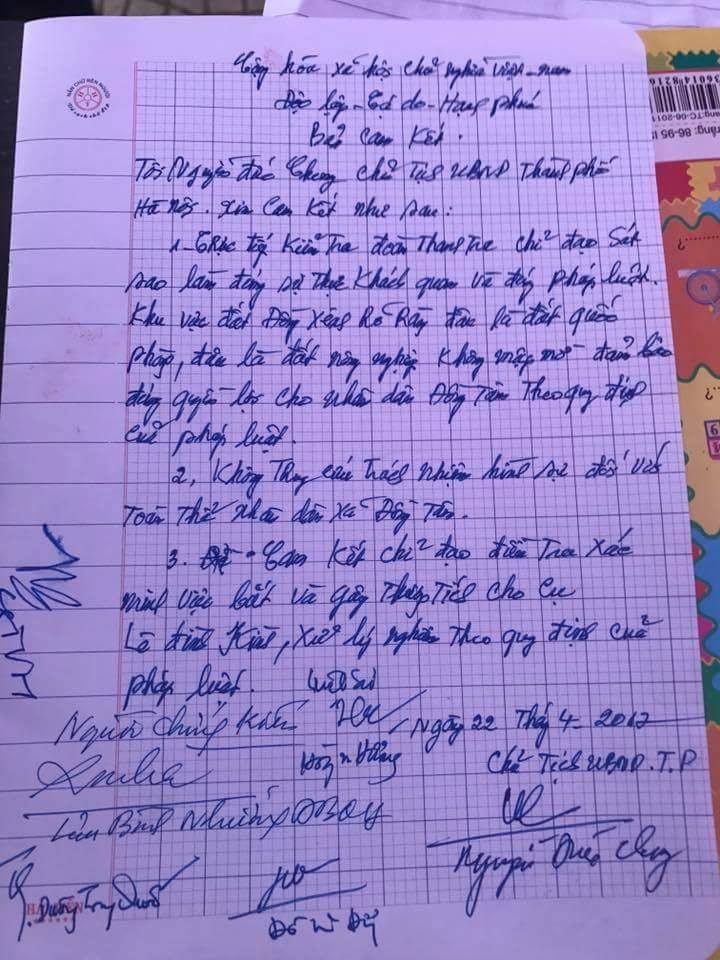 Cộng hòa xã hội chủ nghĩa Việt-nam
Độc lập-Tự do-Hạnh phúc
Bản Cam Kết.
Tôi Nguyễn Đức Chung Chủ Tịch UBND Thành phố
Hà Nội. Xin Cam Kết như sau:
1-Trực tiếp Kiểm Tra đoàn Thanh Tra chỉ đạo Sát
sao làm đúng sự thực Khách quan và đúng pháp luật.
Khu vực đất Đồng Sênh Rõ Ràng đâu là đất quốc
phòng, đâu là đất nông nghiệp Không mập mờ đảm bảo
đúng quyền lợi cho nhân dân Đồng Tâm Theo quy định
của pháp luật.
2, Không Truy cứu Trách nhiệm hình sự đối với
Toàn Thể nhân dân xã Đồng Tâm.
3. Cam Kết chỉ đạo điều Tra Xác
minh việc bắt và gây Thương Tích cho Cụ
Lê đình Kình, Xử lý nghiêm Theo quy định của
pháp luật.
Luật Sư
Người Chứng Kiến
Ngày 22 Thg 4-2017
Chủ Tịch UBND.T.P
Lưu Bình Nhưỡng ĐBQH
Nguyễn Đức Chung
Dương Trung Quốc